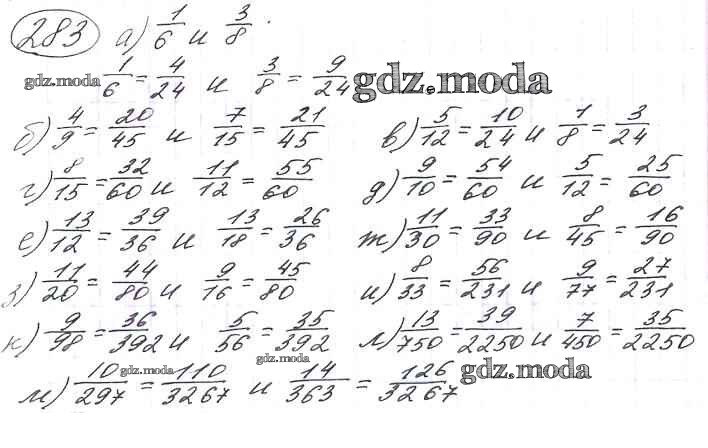 283 а) 1/6 и 3/8.
gdz.moda 1/6 = 4/24 и 3/8 = 9/24 gdz.moda
б) 4/9 = 20/45 и 7/15 = 21/45 в) 5/12 = 10/24 и 1/8 = 3/24
г) 8/15 = 32/60 и 11/12 = 55/60 д) 9/10 = 54/60 и 5/12 = 25/60
е) 13/12 = 39/36 и 13/18 = 26/36 ж) 11/30 = 33/90 и 8/45 = 16/90
з) 11/20 = 44/80 и 9/16 = 45/80 и) 8/33 = 56/231 и 9/77 = 27/231
к) 9/98 = 36/392 и 5/56 = 35/392 л) 13/750 = 39/2250 и 7/450 = 35/2250
gdz.moda
м) 10/297 = 110/3267 и 14/363 = 126/3267
gdz.moda gdz.moda